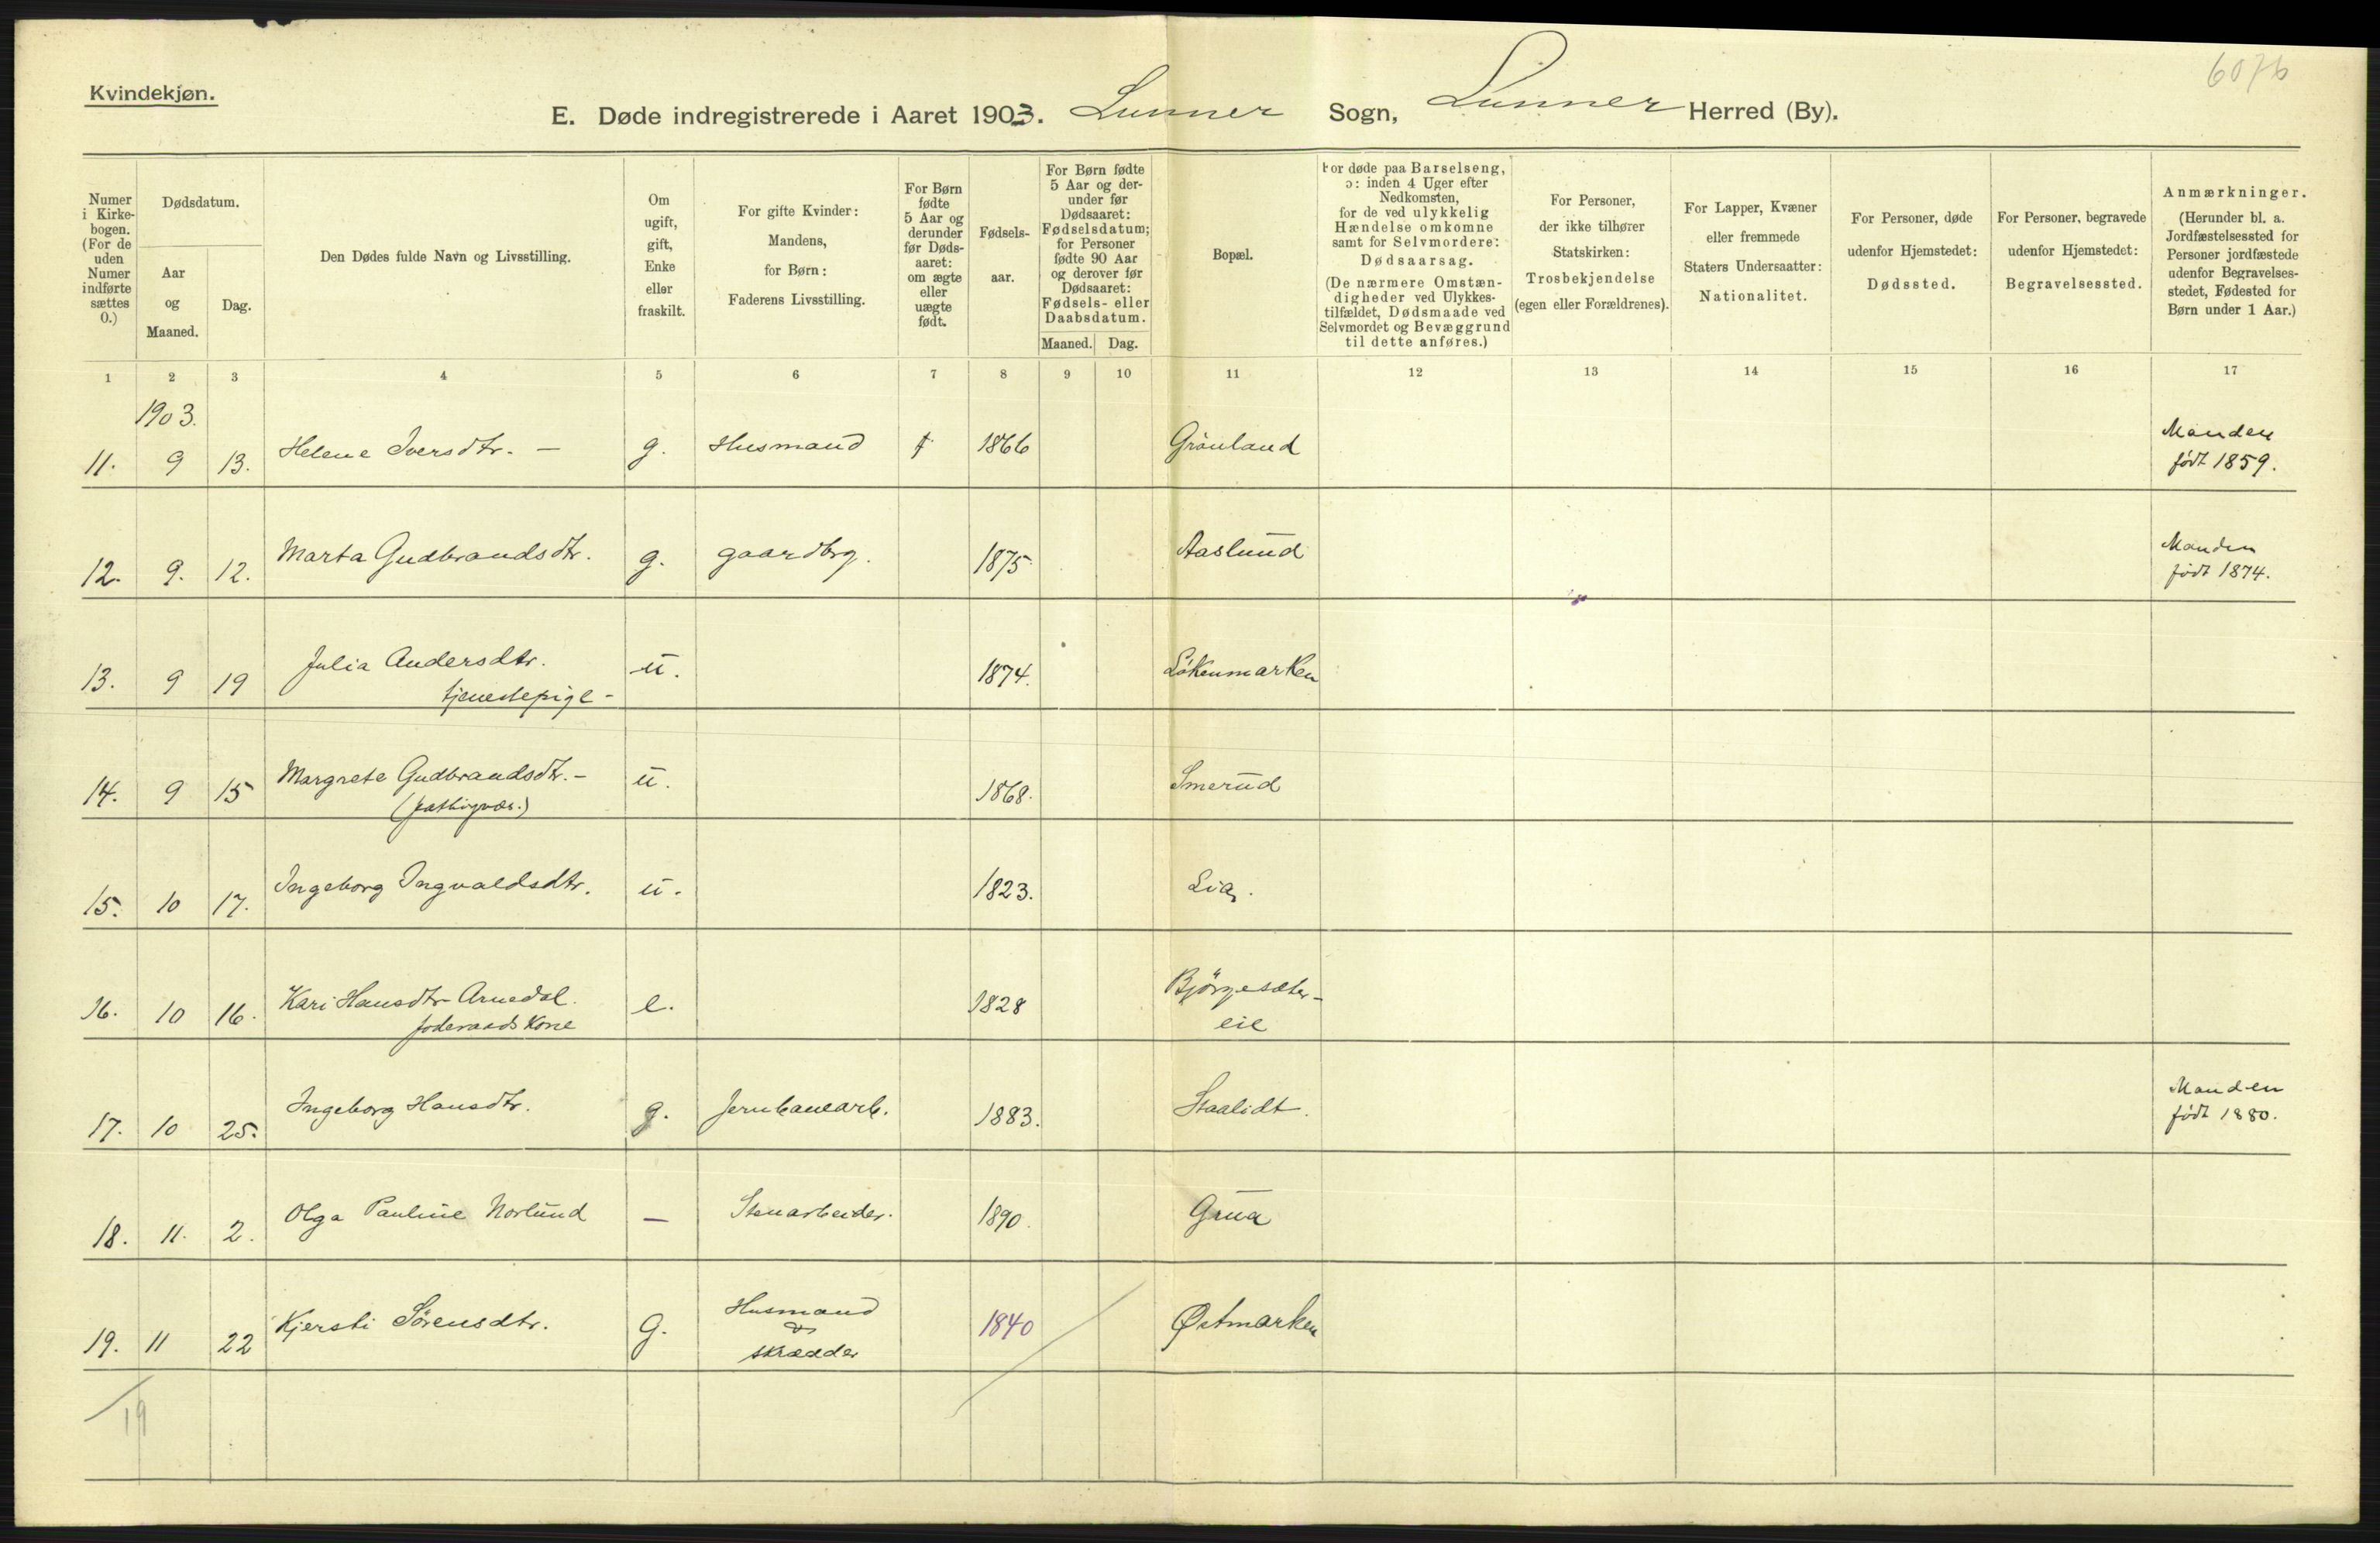 6076
Kvindekjøn.
E. Døde indregistrerede i Aaret 1903. Lunner Sogn, Lunner Herred (By).
Numer i Kirkebogen. (For de uden Numer indførte sættes 0.)
Dødsdatum.
Aar og Maaned.
Dag.
Den Dødes fulde Navn og Livsstilling.
Om ugift, gift, Enke eller fraskilt.
For gifte Kvinder: Mandens, for Børn: Faderens Livsstilling.
For Børn fødte 5 Aar og derunder før Dødsaaret: om ægte eller uægte født.
Fødselsaar.
For Børn fødte 5 Aar og derunder før Dødsaaret: Fødselsdatum; for Personer fødte 90 Aar og derover før Dødsaaret: Fødsels- eller Daabsdatum.
Maaned. Dag.
Bopæl.
For døde paa Barselseng, ɔ: inden 4 Uger efter Nedkomsten, for de ved ulykkelig Hændelse omkomne samt for Selvmordere: Dødsaarsag. (De nærmere Omstændigheder ved Ulykkestilfældet, Dødsmaade ved Selvmordet og Bevæggrund til dette anføres.)
For Personer, der ikke tilhører Statskirken: Trosbekjendelse (egen eller Forældrenes).
For Lapper, Kvæner eller fremmede Staters Undersaatter: Nationalitet.
For Personer, døde udenfor Hjemstedet: Dødssted.
For Personer, begravede udenfor Hjemstedet: Begravelsessted.
Anmærkninger. (Herunder bl. a. Jordfæstelsessted for Personer jordfæstede udenfor Begravelsesstedet, Fødested for Børn under 1 Aar.)
1 2 3 4 5 6 7 8 9 10 11 12 13 14 15 16 17
1903.
11. 9 13. Helene Iversdtr. — g. Husmand 1866 Grönland Manden født 1859.
12. 9. 12. Marta Gudbrandsdtr. g. gaardbrg. 1875 Aaslund Manden født 1874.
13. 9 19 Julia Andersdtr. u. 1874. Lökenmarken
tjenestepige -
14. 9 15 Margrete Gudbrandsdtr. - u. 1868. Smerud
15. 10 17. Ingeborg Ingvaldsdtr. u. 1823. Lia.
16. 10 16. Kari Hansdtr Arnedal. e. 1828 Björgesæter-
foderaadskone eie
17. 10 25. Ingeborg Hansdtr. g. Jernbanearb. 1883. Staalidt. Manden født 1880.
18. 11. 2. Olga Pauline Norlund — Stenarbeider. 1890. Grua
19. 11 22 Kjersti Sörensdtr. g. Husmand & skrædder 1840 Østmarken
19